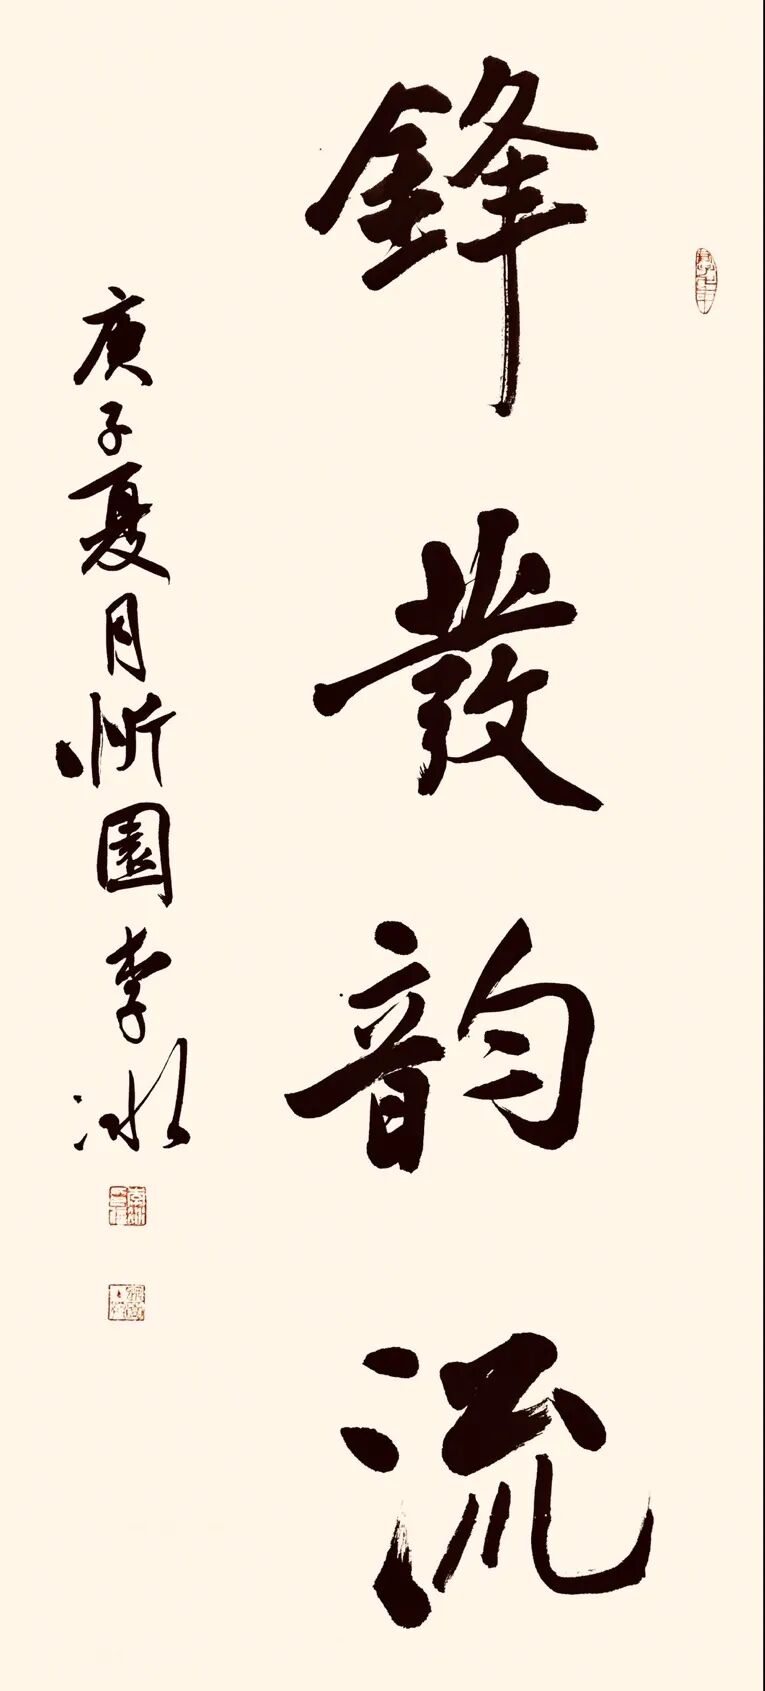 鋒發韵流
庚子夏月忻園李冰